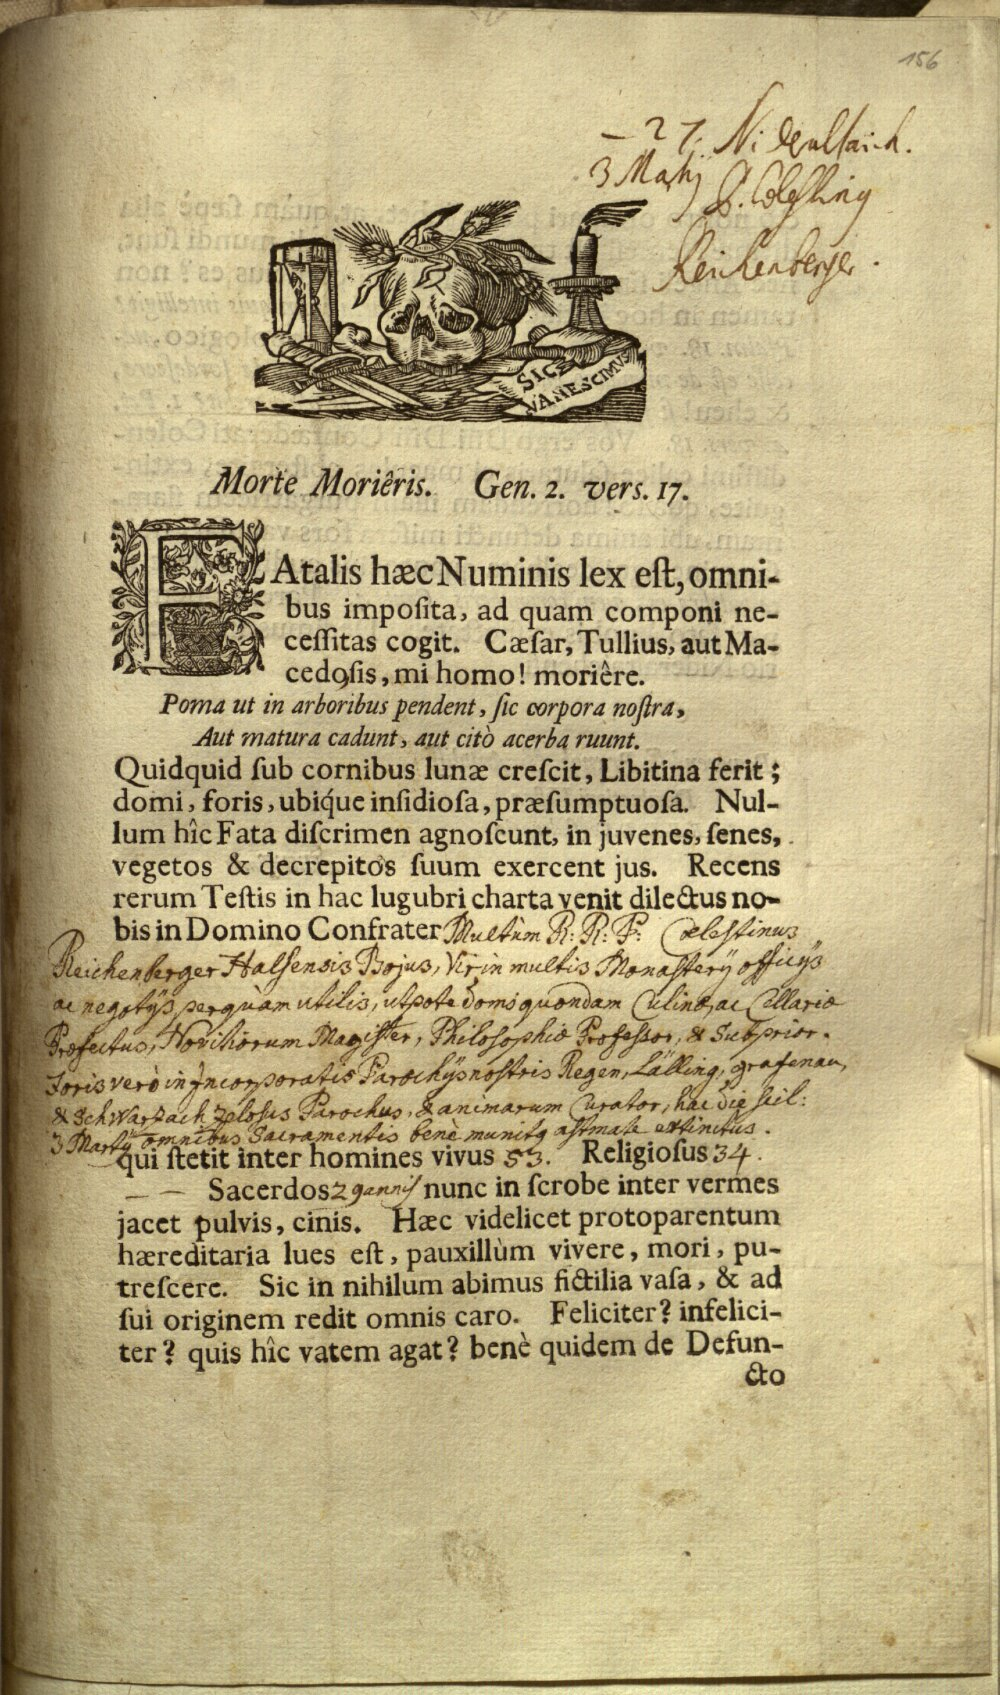 156
– 27. Nideraltaich.
3 Martij P. Cölesting
Reichenberger.
SIC
VANESCIMUS
Morte Moriêris. Gen. 2. vers. 17.
FAtalis hæc Numinis lex eſt, omni-
bus impoſita, ad quam componi ne-
ceſſitas cogit. Cæſar, Tullius, aut Ma-
cedoſis, mi homo! moriêre.
Poma ut in arboribus pendent, ſic corpora noſtra,
Aut matura cadunt, aut citò acerba ruunt.
Quidquid ſub cornibus lunæ creſcit, Libitina ferit;
domi, foris, ubiq́ue inſidioſa, præſumptuoſa. Nul-
lum hîc Fata diſcrimen agnoſcunt, in juvenes, ſenes,
vegetos & decrepitos ſuum exercent jus. Recens
rerum Teſtis in hac lugubri charta venit dilectus no-
bis in Domino Confrater Multùm R: R: P: Cœlestinus
Reichenberger Halsensis Bojus, Vir in multis Monasterÿ officÿs
ac negotÿs perquàm utilis, utpote domi quondam Culinæ, ac Cellariæ
Præfectus, Novitiorum Magister, Philosophiæ Professor, & Subprior.
Foris verò in Incorporatis Parochÿs nostris Regen, Lälling, grafenau,
& Schwarzach zelosus Parochus, & animarum Curator, hac die scil:
3 Martÿ omnibus Sacramentis benè munitg astmate extinctus.
qui ſtetit inter homines vivus 53. Religioſus 34.
– – Sacerdos 29 annis nunc in ſcrobe inter vermes
jacet pulvis, cinis. Hæc videlicet protoparentum
hæreditaria lues eſt, pauxillùm vivere, mori, pu-
treſcere. Sic in nihilum abimus fictilia vaſa, & ad
ſui originem redit omnis caro. Feliciter? infelici-
ter? quis hîc vatem agat? benè quidem de Defun-
cto